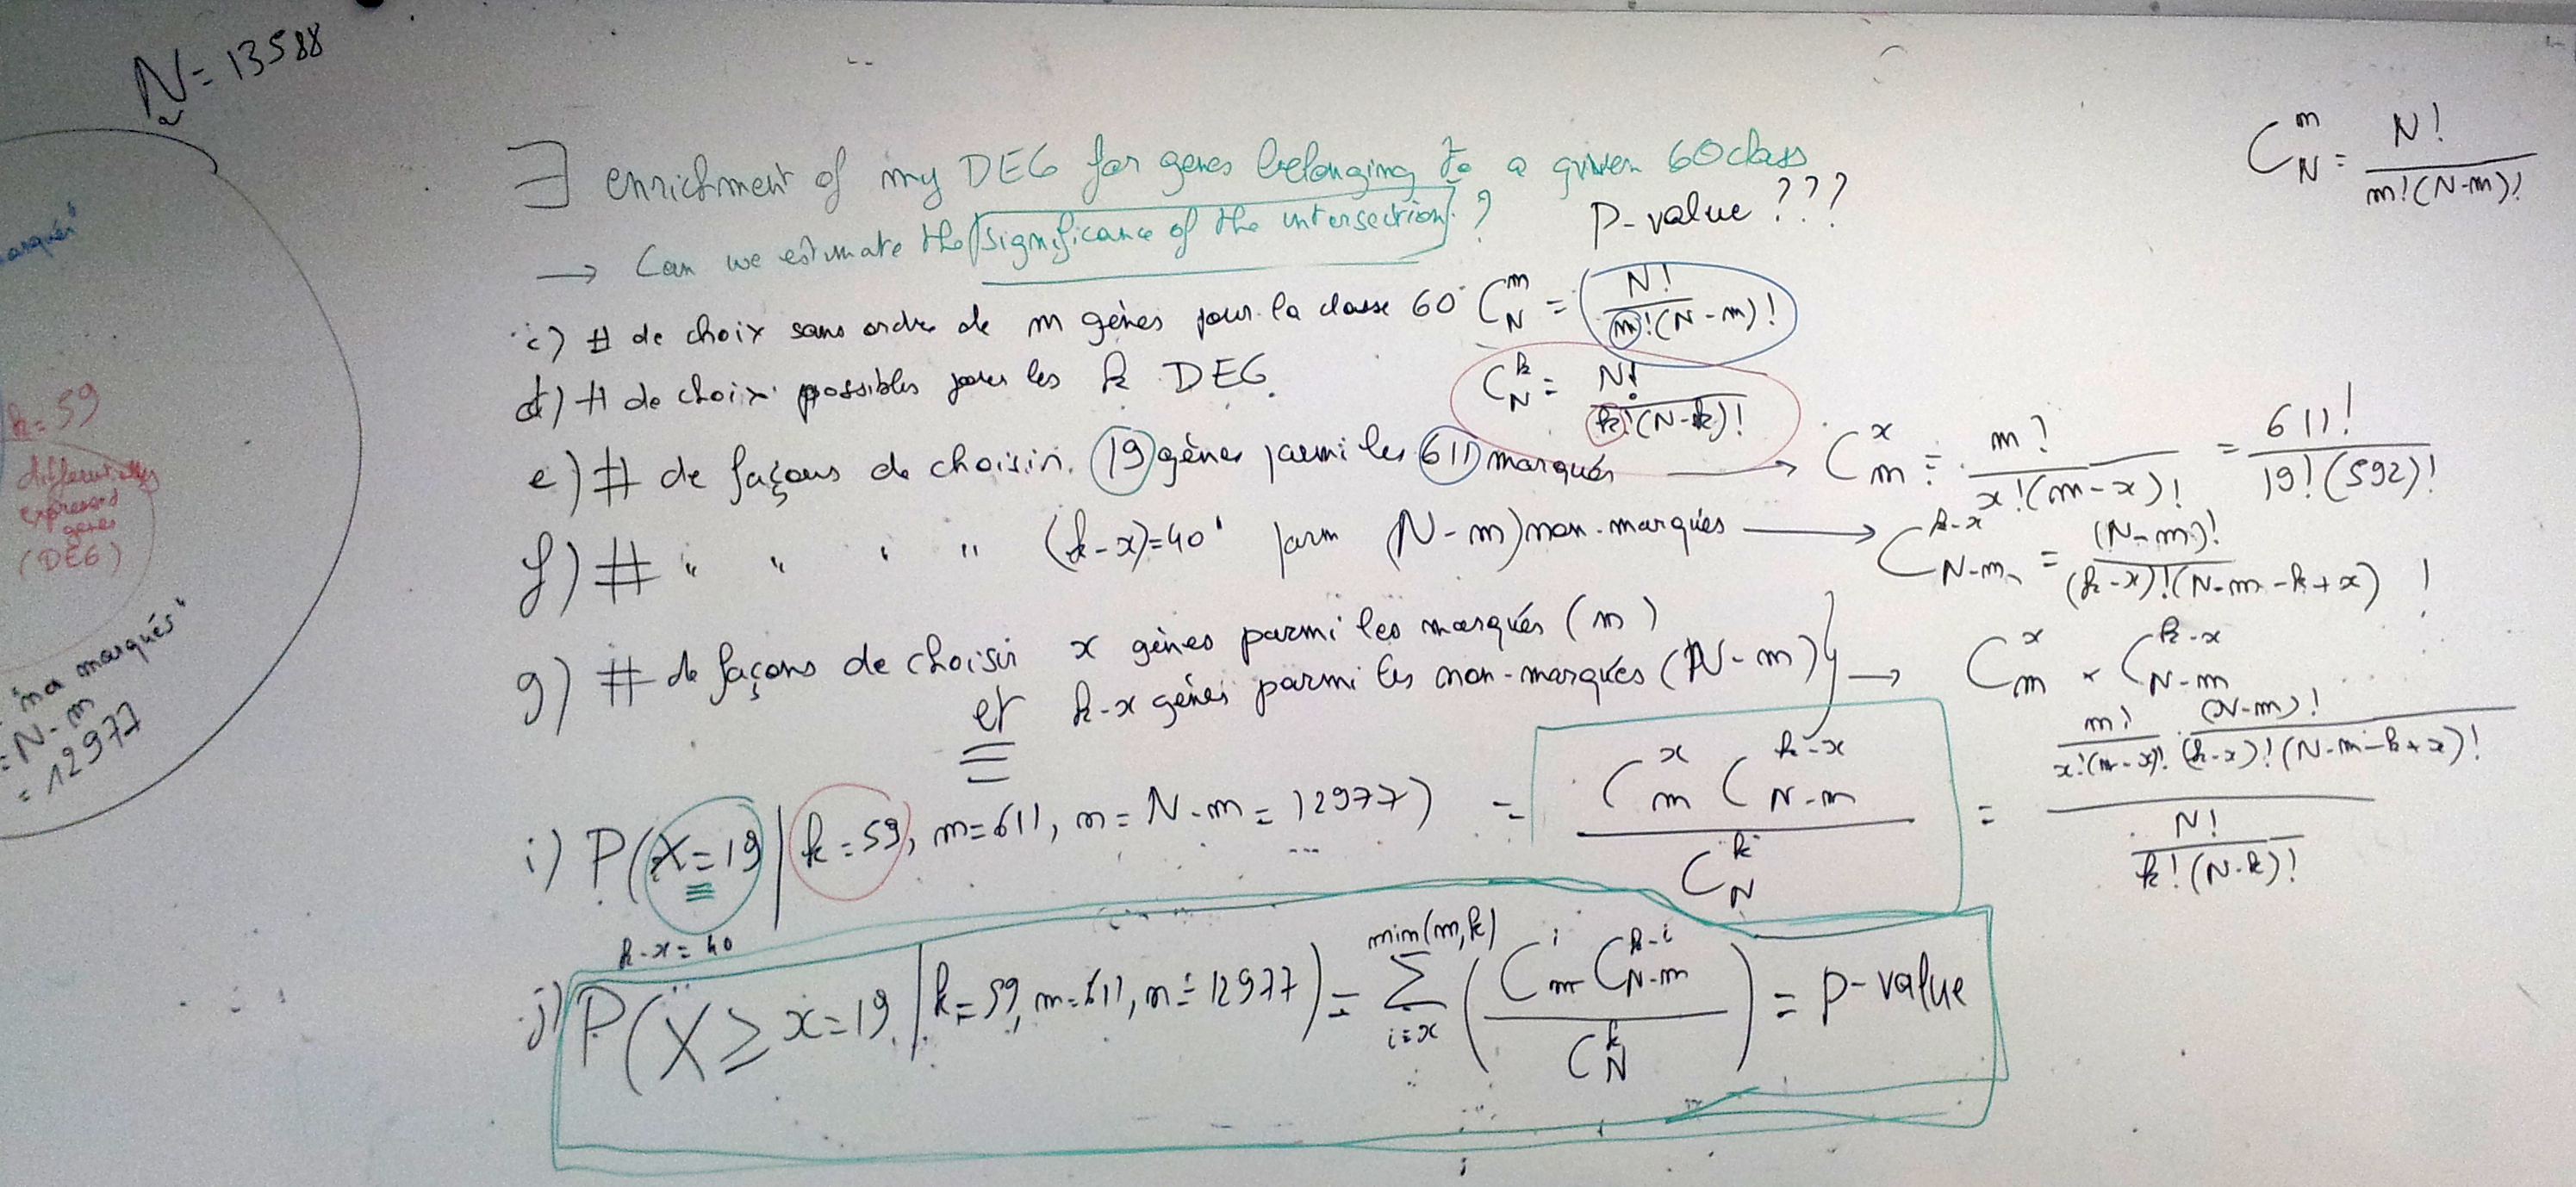 N = 13588
arqués"
k = 59
differentially
expressed
genes
(DEG)
marqués"
= N-m
= 12977
C_N^m = N! / m!(N-m)!
∃ enrichment of my DEG for genes belonging to a given GO class
→ Can we estimate the significance of the intersection ?
P-value ???
c) # de choix sans ordre de m gènes pour la classe GO C_N^m = N! / m!(N-m)!
d) # de choix possibles pour les k DEG. C_N^k = N! / k!(N-k)!
e) # de façons de choisir 19 gènes parmi les 611 marqués → C_m^x = m! / x!(m-x)! = 611! / 19!(592)!
f) # " " " " (k-x)=40 parm (N-m) non-marqués → C_{N-m}^{k-x} = (N-m)! / (k-x)!(N-m-k+x)!
g) # de façons de choisir x gènes parmi les marqués (m)
et k-x gènes parmi les non-marqués (N-m) } → C_m^x × C_{N-m}^{k-x}
i) P(X=19 | k=59, m=611, n=N-m=12977) = C_m^x C_{N-m}^{k-x} / C_N^k = (m! / x!(m-x)! · (N-m)! / (k-x)!(N-m-k+x)!) / (N! / k!(N-k)!)
k-x = 40
j) P(X ≥ x=19 | k=59, m=611, n=12977) = Σ_{i=x}^{min(m,k)} (C_m^i C_{N-m}^{k-i} / C_N^k) = P-value